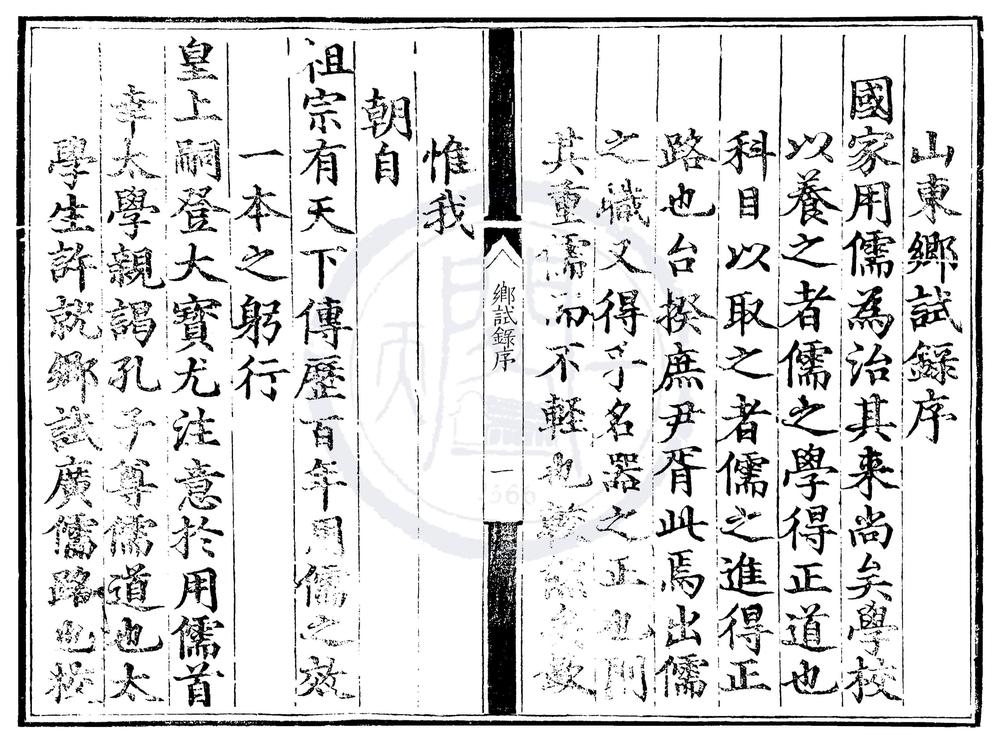 山東鄉試錄序
國家用儒為治其來尚矣學校
以養之者儒之學得正道也
科目以取之者儒之進得正
路也台揆庶尹胥此焉出儒
之職又得乎名器之正也
其重儒而不輕也
鄉試錄序
一
惟我
朝自
祖宗有天下傳歷百年用儒之效
一本之躬行
皇上嗣登大寶尤注意於用儒首
幸太學親謁孔子尊儒道也太
學生許就鄉試廣儒路也